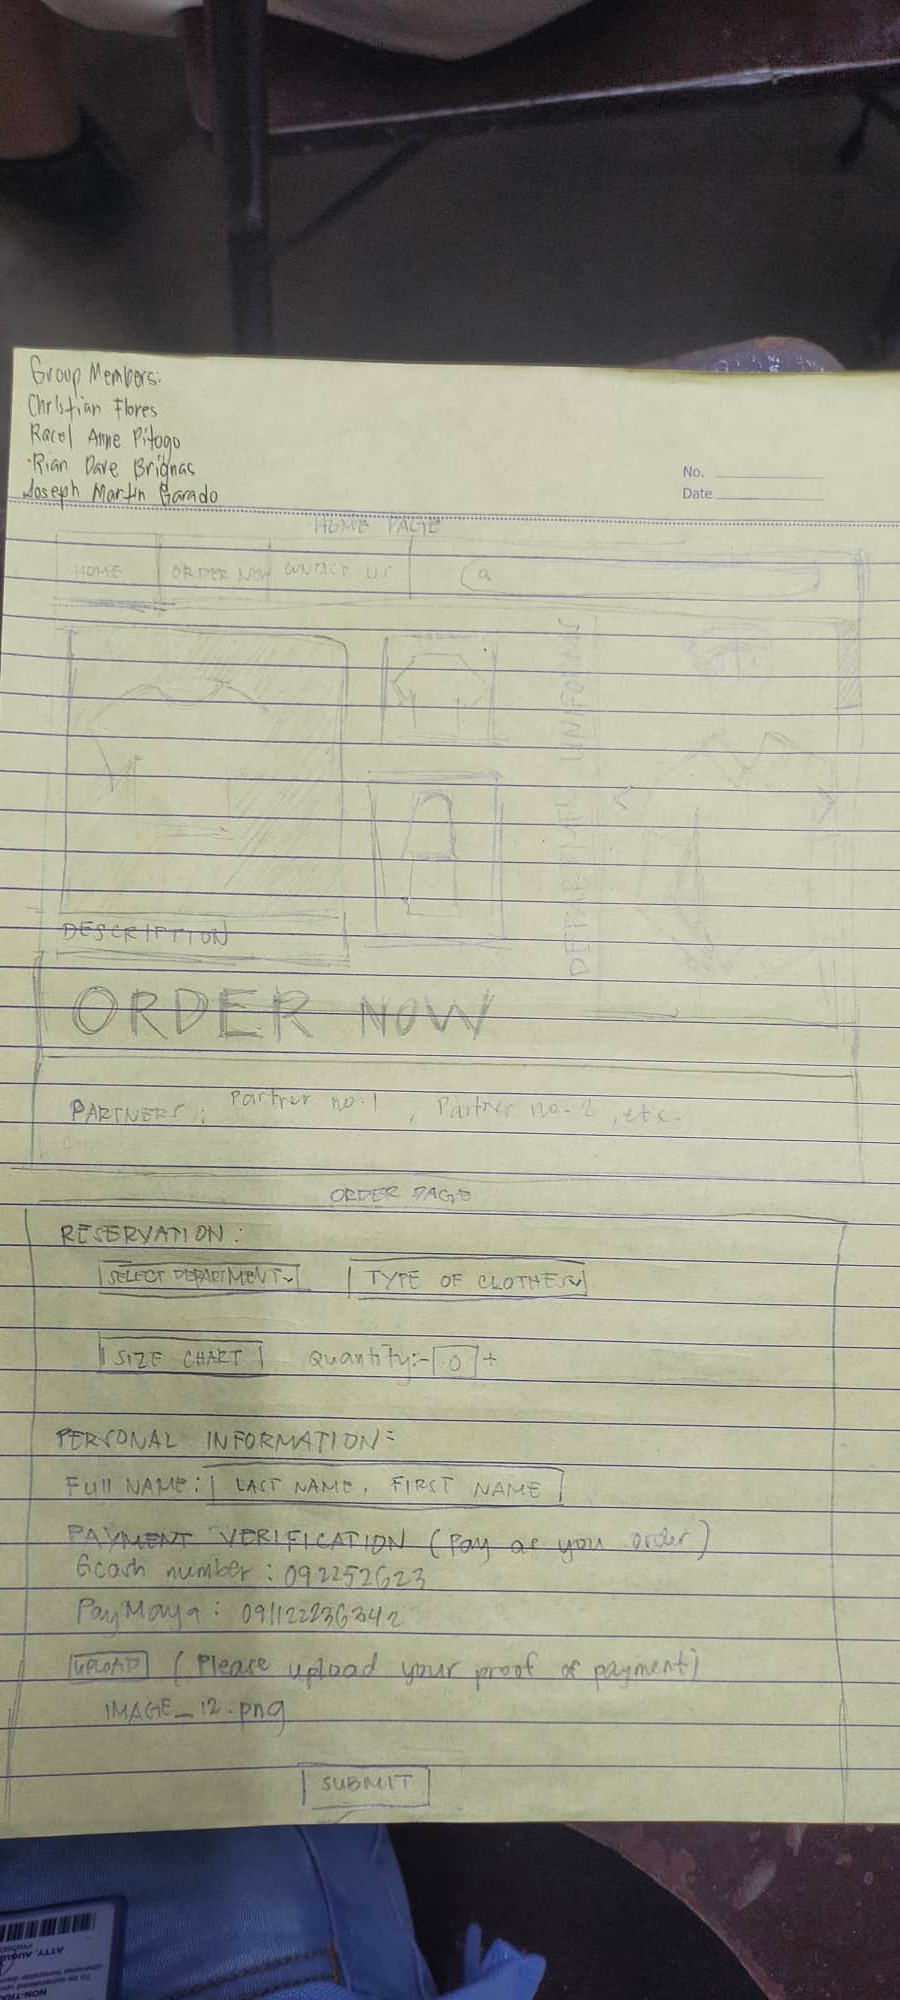 Group Members:
Christian Flores
Racel Anne Pitogo
Rian Dave Brignas
Joseph Martin Garado
No.
Date
HOME PAGE
HOME
ORDER NOW
CONTACT US
DEPARTMENT UNIFORM
DESCRIPTION
ORDER NOW
PARTNERS: Partner no.1, Partner no. 2, etc.
ORDER PAGE
RESERVATION:
SELECT DEPARTMENT
TYPE OF CLOTHES
SIZE CHART Quantity:-0+
PERSONAL INFORMATION:
Full NAME: LAST NAME, FIRST NAME
PAYMENT VERIFICATION (Pay as you order)
Gcash number: 092252623
PayMaya: 09112223G342
UPLOAD (Please upload your proof of payment)
IMAGE_12.png
SUBMIT
ATTY.
NON-TRA